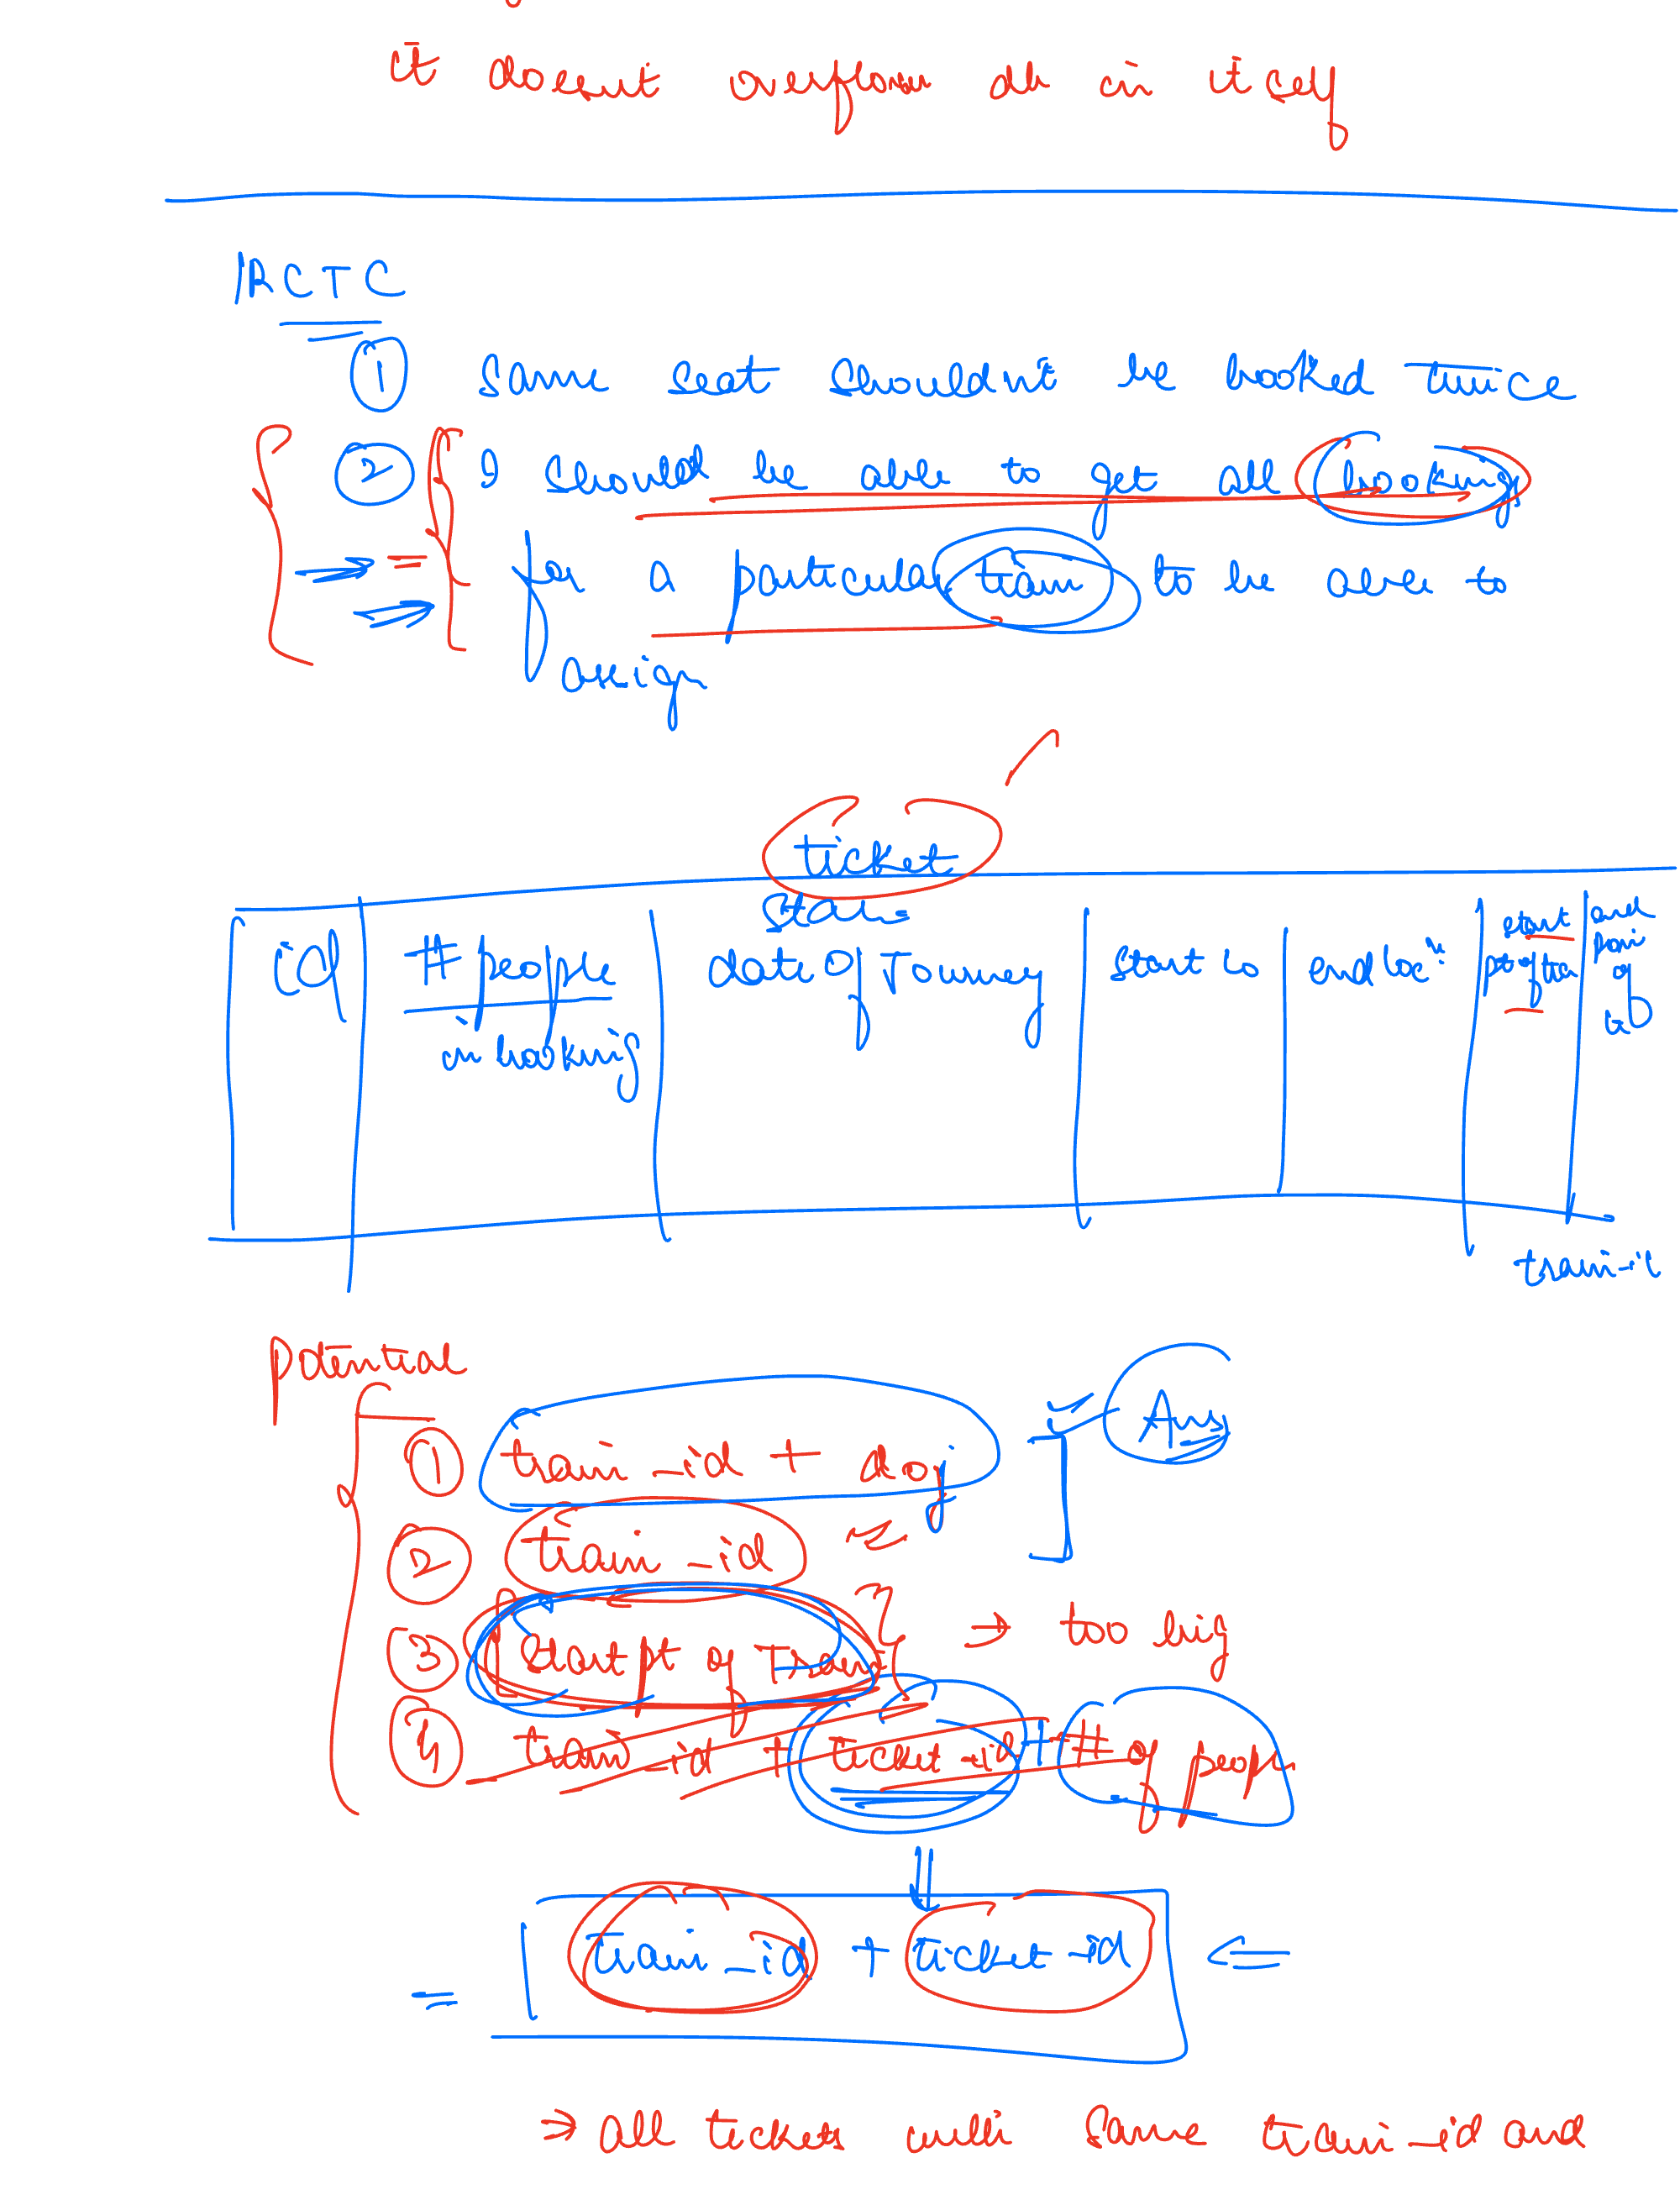 it doesn't overflow in itself
IRCTC
① Same seat shouldn't be booked twice
② I should be able to get all bookings
for a particular train to be able to
assign
ticket
id | # people in booking | date Of Journey | start lo | end locn | start pt of trn | end poi of
train-i
potential
① train-id + doj Ans
② train-id
③ Start pt of Train → too big
④ train-id + ticket-id + # of people
= train-id + ticket-id ⇐
→ all tickets with same train-id and